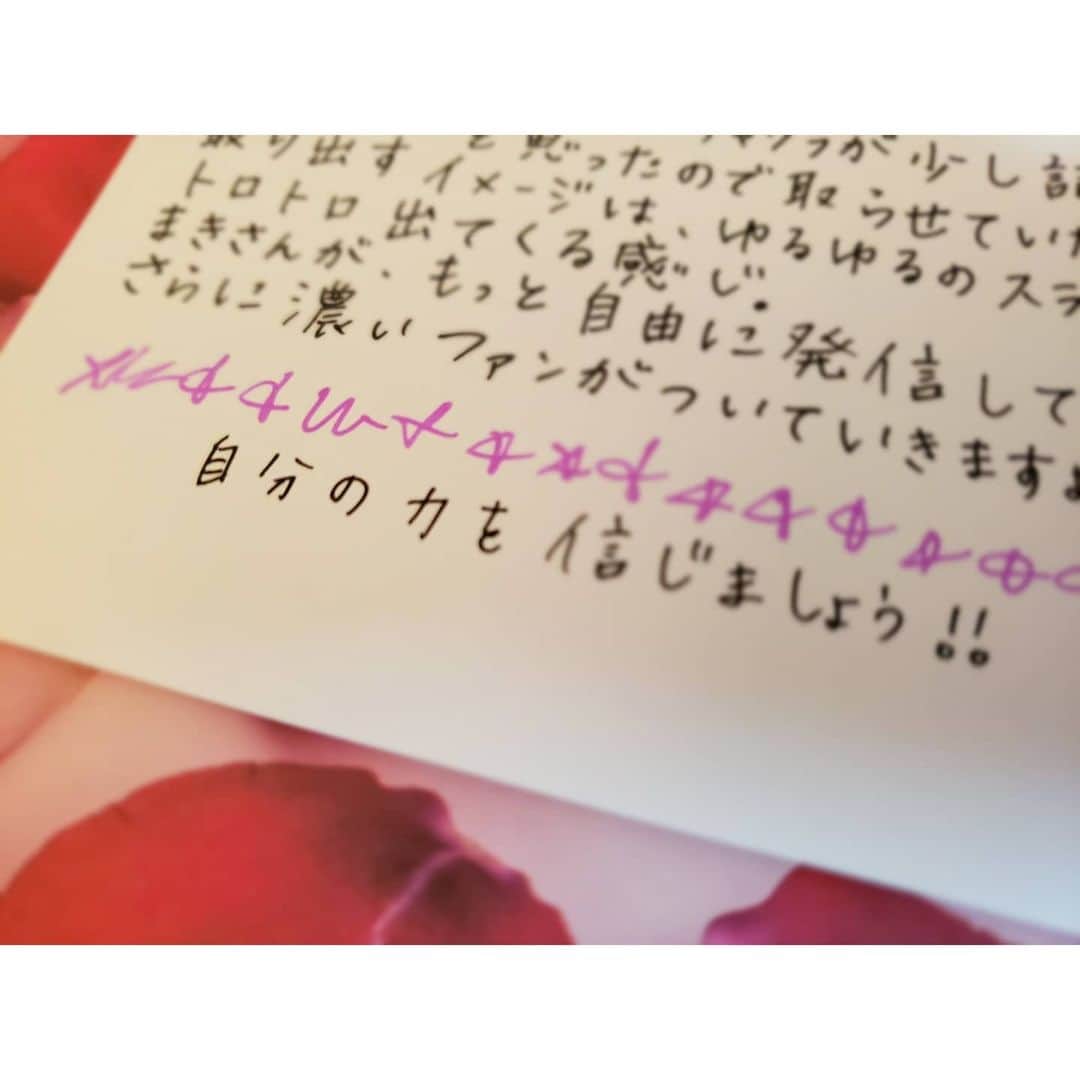 が少し
と思ったので取らせていた
取り出すイメージは、ゆるゆるのスラ
トロトロ出てくる感じ。
まきさんが、もっと自由に発信して
さらに濃いファンがついていきますよ
自分の力を信じましょう!!